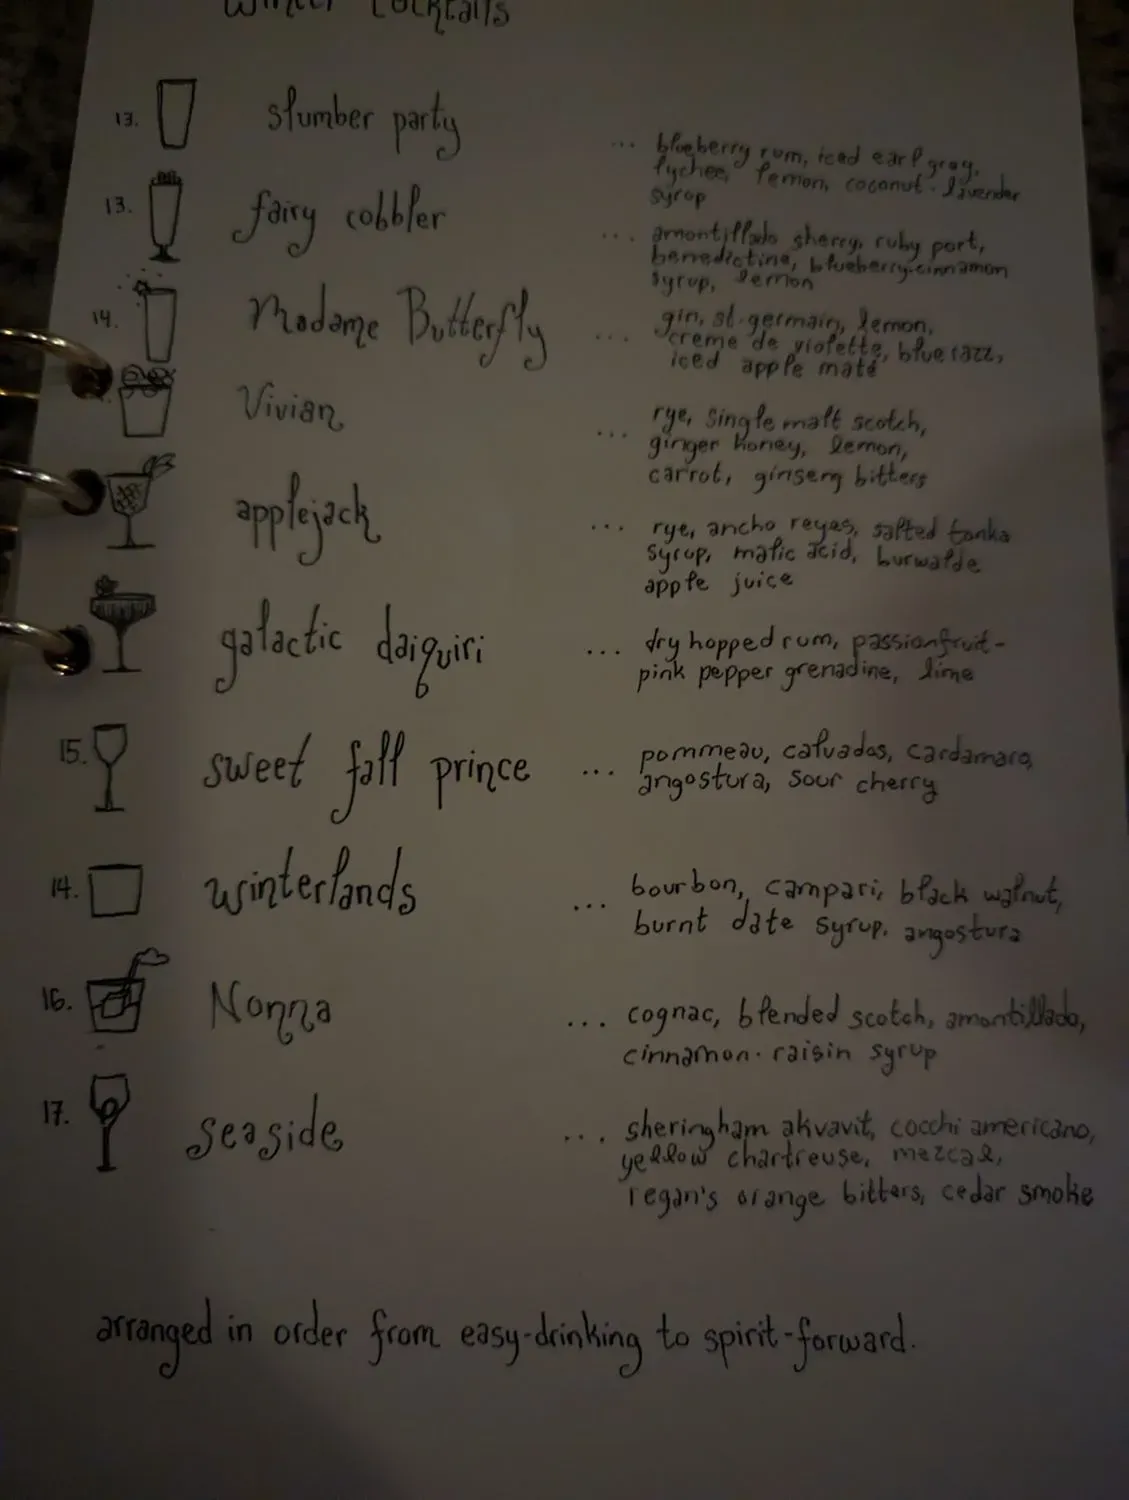 winter cocktails
13. slumber party ... blueberry rum, iced earl gray,
lychee, lemon, coconut-lavender
syrup
13. fairy cobbler ... amontillado sherry, ruby port,
benedictine, blueberry-cinnamon
syrup, lemon
14. Madame Butterfly ... gin, st-germain, lemon,
creme de violette, blue razz,
iced apple maté
Vivian ... rye, single malt scotch,
ginger honey, lemon,
carrot, ginseng bitters
applejack ... rye, ancho reyes, salted tonka
syrup, malic acid, burwalde
apple juice
galactic daiquiri ... dry hopped rum, passionfruit-
pink pepper grenadine, lime
15. sweet fall prince ... pommeau, calvados, cardamaro,
angostura, sour cherry
14. winterlands ... bourbon, campari, black walnut,
burnt date syrup, angostura
16. Nonna ... cognac, blended scotch, amontillado,
cinnamon-raisin syrup
17. seaside ... sheringham akvavit, cocchi americano,
yellow chartreuse, mezcal,
regan's orange bitters, cedar smoke
arranged in order from easy-drinking to spirit-forward.